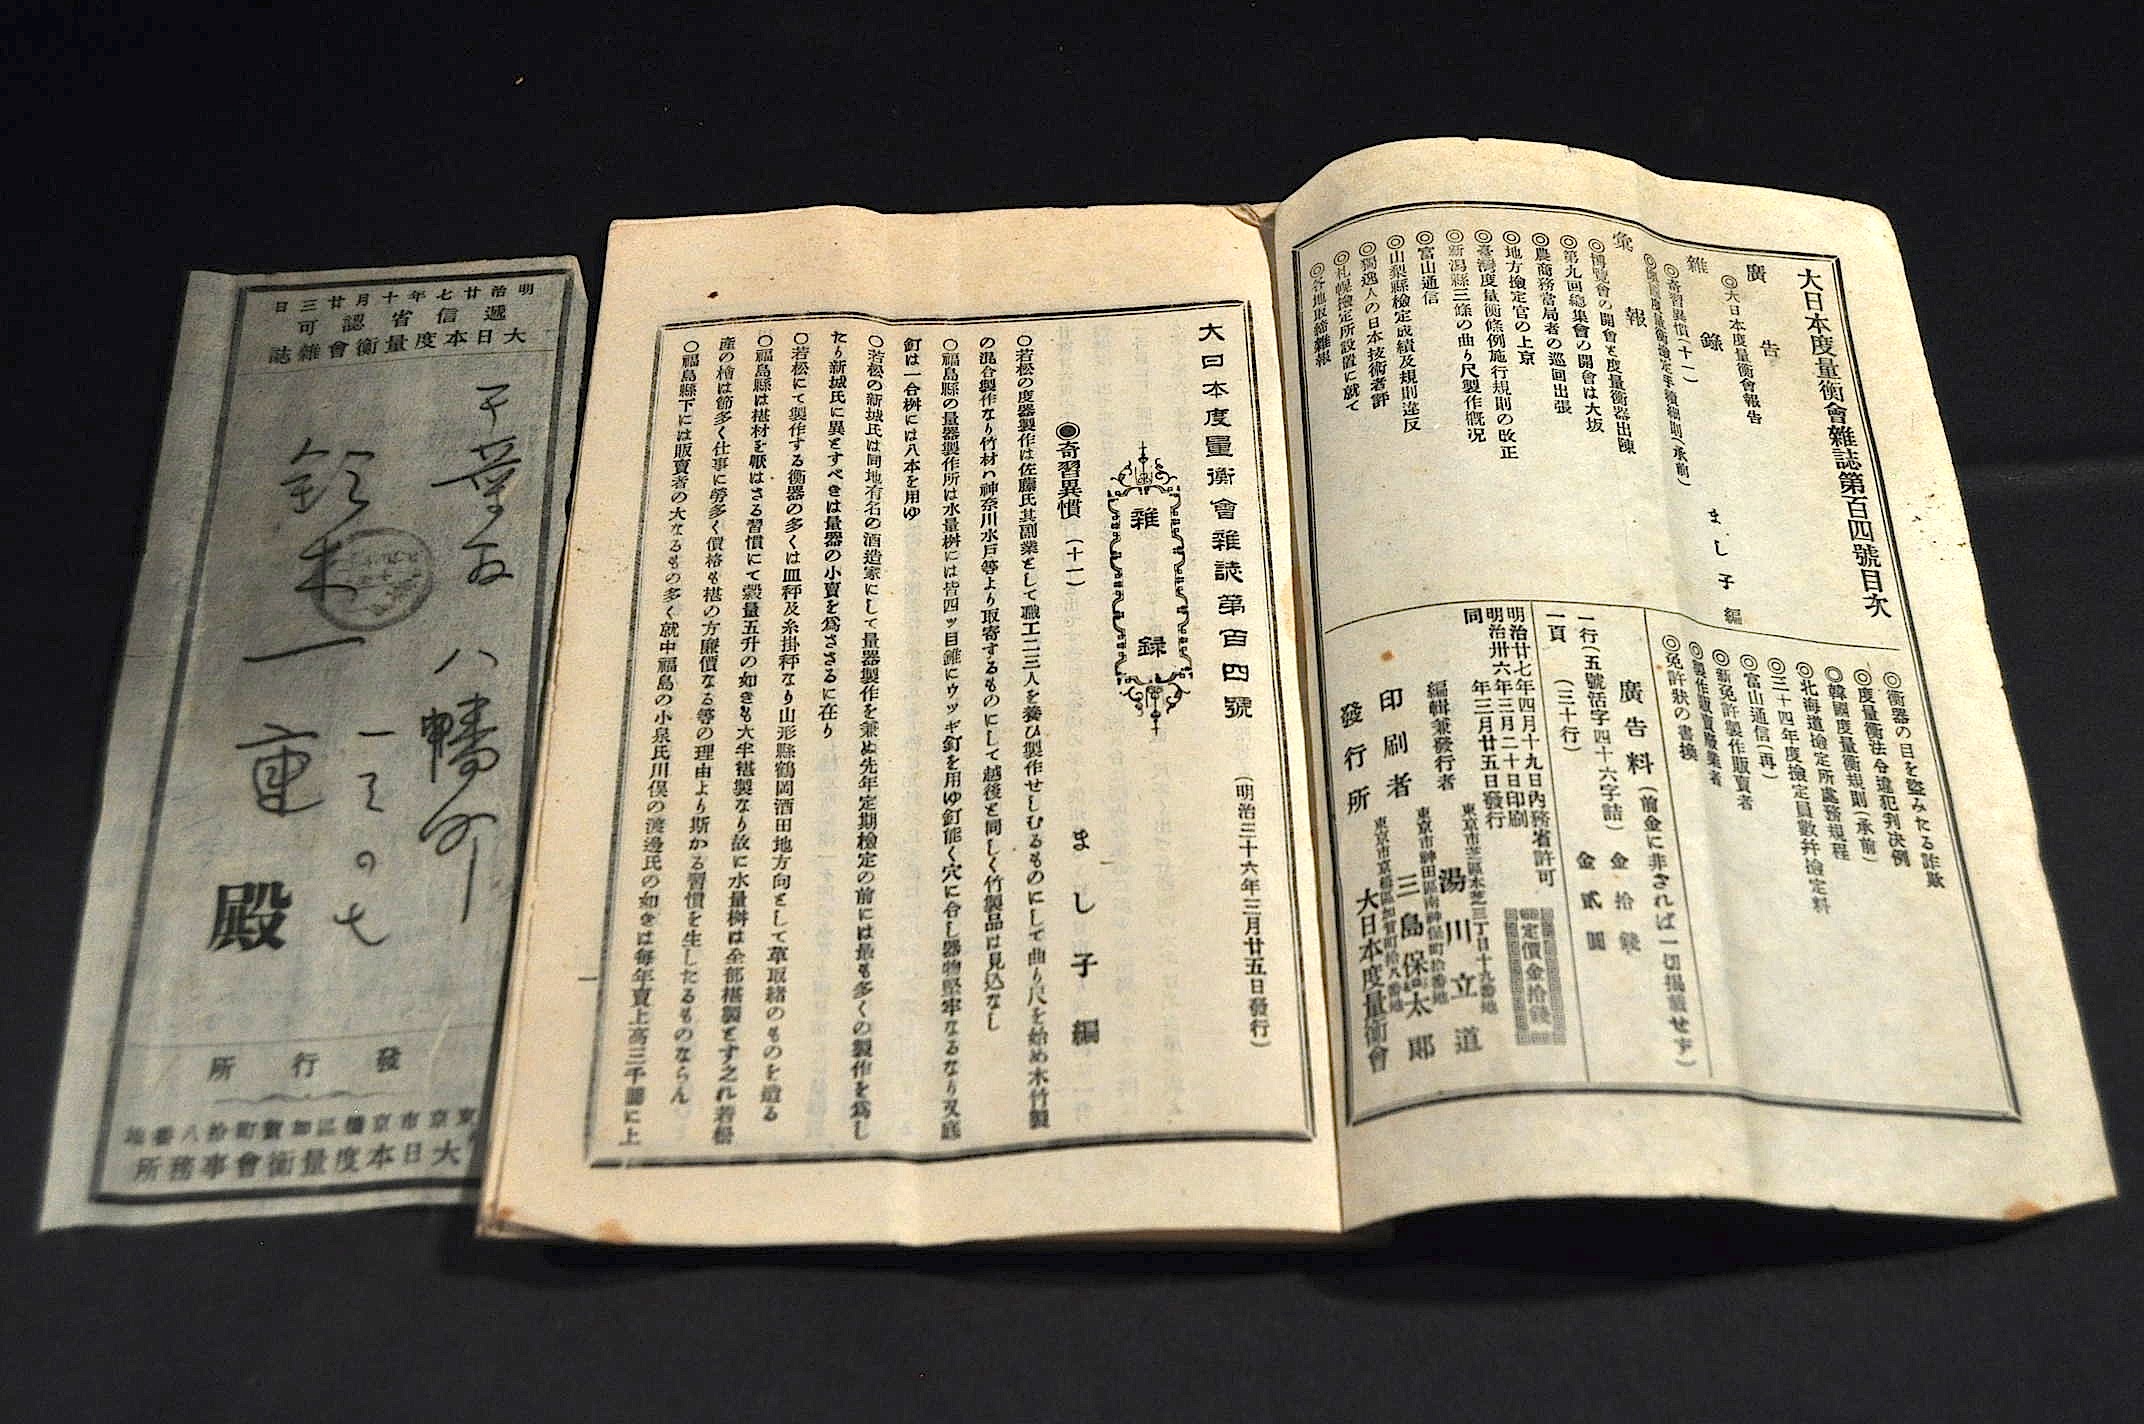 大日本度量衡會雜誌第百四號目次
廣告
◎大日本度量衡會報告
雜錄
まし子編
◎奇習異慣(十一)
彙報
◎博覽會の開會と度量衡器出陳
◎第九回總集會の開會は大坂
◎農商務當局者の巡回出張
◎地方檢定官の上京
◎臺灣度量衡條例施行規則の改正
◎新潟縣三條の曲り尺製作概况
◎富山通信
◎山梨縣檢定成績及規則違反
◎獨逸人の日本技術者評
◎札幌檢定所設置に就て
◎各地取締雜報
◎衡器の目を盜みたる詐欺
◎度量衡法令違犯判決例
◎韓國度量衡規則(承前)
◎北海道檢定所處務規程
◎三十四年度檢定員數幷檢定料
◎富山通信(再)
◎新免許製作販賣者
◎製作販賣廢業者
◎免許狀の書換
廣告料(前金に非されば一切揭載せず)
一行(五號活字四十六字詰)金拾錢
一頁(三十行)金貳圓
明治廿七年四月十九日內務省許可
明治卅六年三月二十日印刷
同年三月廿五日發行
定價金拾錢
編輯兼發行者
東京市芝區本芝三丁目十九番地
湯川立道
印刷者
東京市神田區南神保町拾番地
三島保太郎
發行所
東京市京橋區加賀町拾八番地
大日本度量衡會
大日本度量衡會雜誌第百四號(明治三十六年三月廿五日發行)
雜錄
◉奇習異慣(十一)まし子編
〇若松の度器製作は佐藤氏其副業として職工二三人を養ひ製作せしむるものにして曲り尺を始め木竹製
の混合製作なり竹材ハ神奈川水戶等より取寄するものにして越後と同しく竹製品は見込なし
〇福島縣の量器製作所は水量桝には皆四ッ目錐にウッギ釘を用ゆ釘能く穴に合し器物堅牢なるなり又底
釘は一合桝には八本を用ゆ
〇若松の新城氏は同地有名の酒造家にして量器製作を兼ぬ先年定期檢定の前には最も多くの製作を爲し
たり新城氏に異とすべきは量器の小賣を爲さゞるに在り
〇若松にて製作する衡器の多くは皿秤及糸掛秤なり山形縣鶴岡酒田地方向として草取緒のものを造る
〇福島縣は椹材を厭はさる習慣にて穀量五升の如きも大半椹製なり故に水量桝は全部椹製とす之れ若松
產の檜は節多く仕事に勞多く價格も椹の方廉價なる等の理由より斯かる習慣を生したるものならん
〇福島縣下には販賣者の大なるもの多く就中福島の小泉氏川俣の渡邊氏の如きは每年賣上高三千圓に上
一
明治廿七年十月廿三日
遞信省認可
大日本度量衡會雜誌
千葉市八幡町
一ノ七
鈴木一重殿
發行所
東京市京橋區加賀町拾八番地
大日本度量衡會事務所